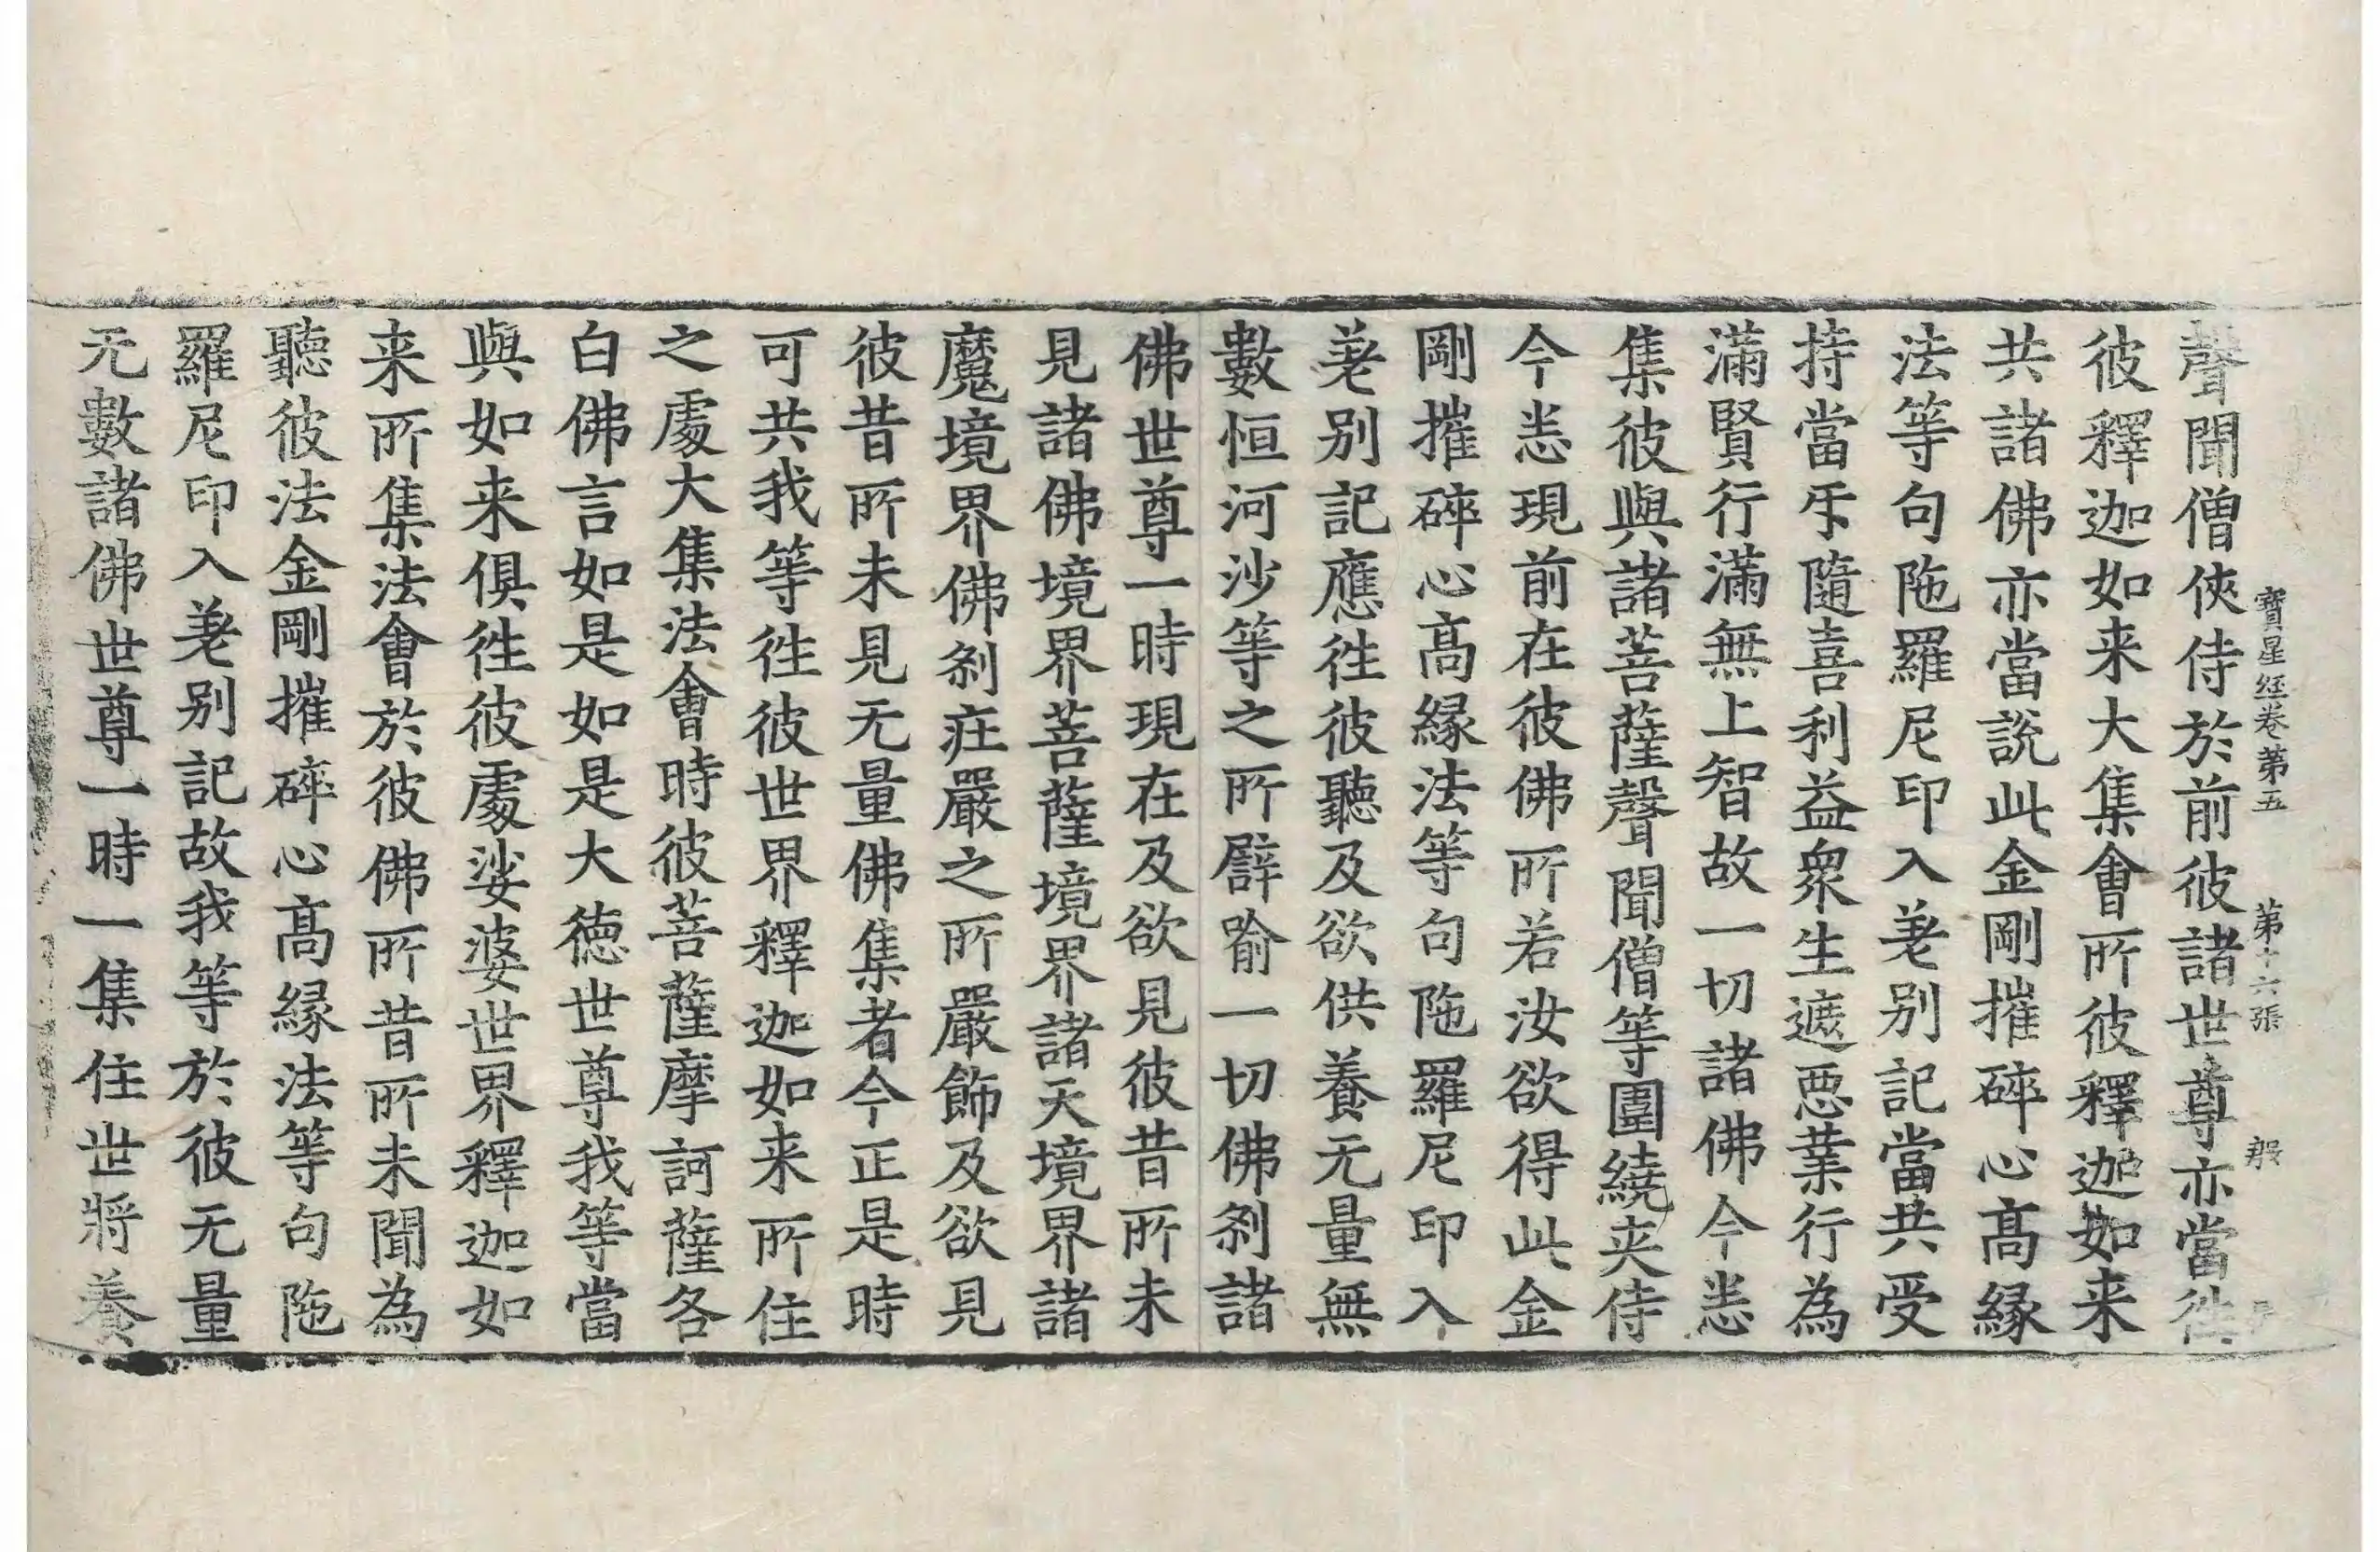 寶星経卷第五　第十六張　般
聲聞僧俠侍於前彼諸世尊亦當往
彼釋迦如来大集會所彼釋迦如来
共諸佛亦當說此金剛摧碎心髙緣
法等句陁羅尼印入㕠别記當共受
持當乐隨喜利益衆生遮惡業行為
滿賢行滿無上智故一切諸佛今恙
集彼與諸菩薩聲聞僧等圍繞夾侍
今恙現前在彼佛所若汝欲得此金
剛摧碎心髙緣法等句陁羅尼印入
㕠别記應往彼聽及欲供養无量無
數恒河沙等之所譬喻一切佛刹諸
佛世尊一時現在及欲見彼昔所未
見諸佛境界菩薩境界諸天境界諸
魔境界佛刹庄嚴之所嚴飾及欲見
彼昔所未見无量佛集者今正是時
可共我等往彼世界釋迦如来所住
之處大集法會時彼菩薩摩訶薩各
白佛言如是如是大德世尊我等當
與如来俱往彼處娑婆世界釋迦如
来所集法會於彼佛所昔所未聞為
聽彼法金剛摧碎心髙緣法等句陁
羅尼印入㕠别記故我等於彼无量
无數諸佛世尊一時一集住世將養